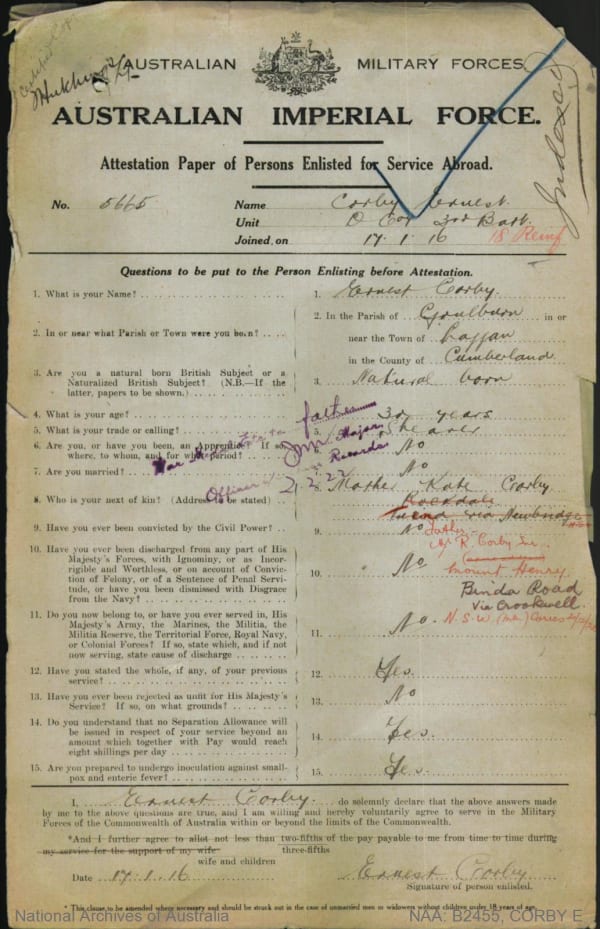 AUSTRALIAN MILITARY FORCES.
AUSTRALIAN IMPERIAL FORCE.
Indexed
Attestation Paper of Persons Enlisted for Service Abroad.
No. 5665 Name Corby Ernest.
Unit D Coy 3rd Batt.
Joined on 17.1.16 18 Reinf
Questions to be put to the Person Enlisting before Attestation.
1. What is your Name? 1. Ernest Corby.
2. In or near what Parish or Town were you born? 2. In the Parish of Goulburn in or
near the Town of Laggan
in the County of Cumberland
3. Are you a natural born British Subject or a
Naturalized British Subject? (N.B.—If the
latter, papers to be shown.) 3. Natural born
4. What is your age? 4. years
5. What is your trade or calling? 5. Shearer
6. Are you, or have you been, an Apprentice? If so,
where, to whom, and for what period? 6. No
7. Are you married? 7. No
Major
Officer Records
8. Who is your next of kin? (Address to be stated) 8. Mother Kate Corby
Rockdale
via Newbridge
9. Have you ever been convicted by the Civil Power? 9. No
Father
Mr R. Corby Snr.
10. Have you ever been discharged from any part of His
Majesty's Forces, with Ignominy, or as Incor-
rigible and Worthless, or on account of Convic-
tion of Felony, or of a Sentence of Penal Servi-
tude, or have you been Dismissed with Disgrace
from the Navy? 10. No
Mount Henry
Binda Road
Via Crookwell
N.S.W.
11. Do you now belong to, or have you ever served in, His
Majesty's Army, the Marines, the Militia, the
Militia Reserve, the Territorial Force, Royal Navy,
or Colonial Forces? If so, state which, and if not
now serving, state cause of discharge 11. No.
12. Have you stated the whole, if any, of your previous
service? 12. Yes.
13. Have you ever been rejected as unfit for His Majesty's
Service? If so, on what grounds? 13. No
14. Do you understand that no Separation Allowance will
be issued in respect of your service beyond an
amount which together with Pay would reach
eight shillings per day 14. Yes.
15. Are you prepared to undergo inoculation against small-
pox and enteric fever? 15. Yes.
I, Ernest Corby. do solemnly declare that the above answers made
by me to the above questions are true, and I am willing and hereby voluntarily agree to serve in the Military
Forces of the Commonwealth of Australia within or beyond the limits of the Commonwealth.
*And I further agree to allot not less than two-fifths of the pay payable to me from time to time during
three-fifths
my service for the support of my wife
wife and children
Date 17.1.16 Ernest Corby.
Signature of person enlisted.
* This clause to be amended where necessary and should be struck out in the case of unmarried men or widowers without children under 18 years of age.
National Archives of Australia NAA: B2455, CORBY E